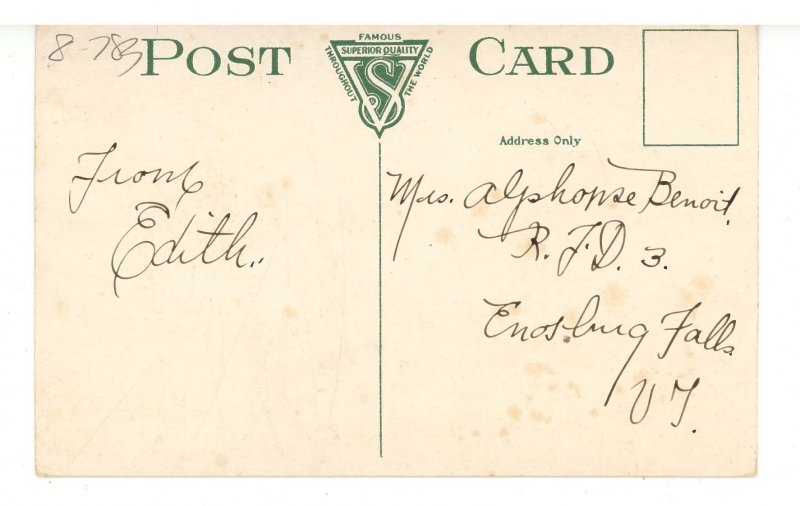 8-783
POST CARD
FAMOUS
SUPERIOR QUALITY
THROUGHOUT THE WORLD
VS
Address Only
From
Edith.
Mrs. Alphonse Benoit.
R.F.D. 3.
Enosburg Falls
VT.